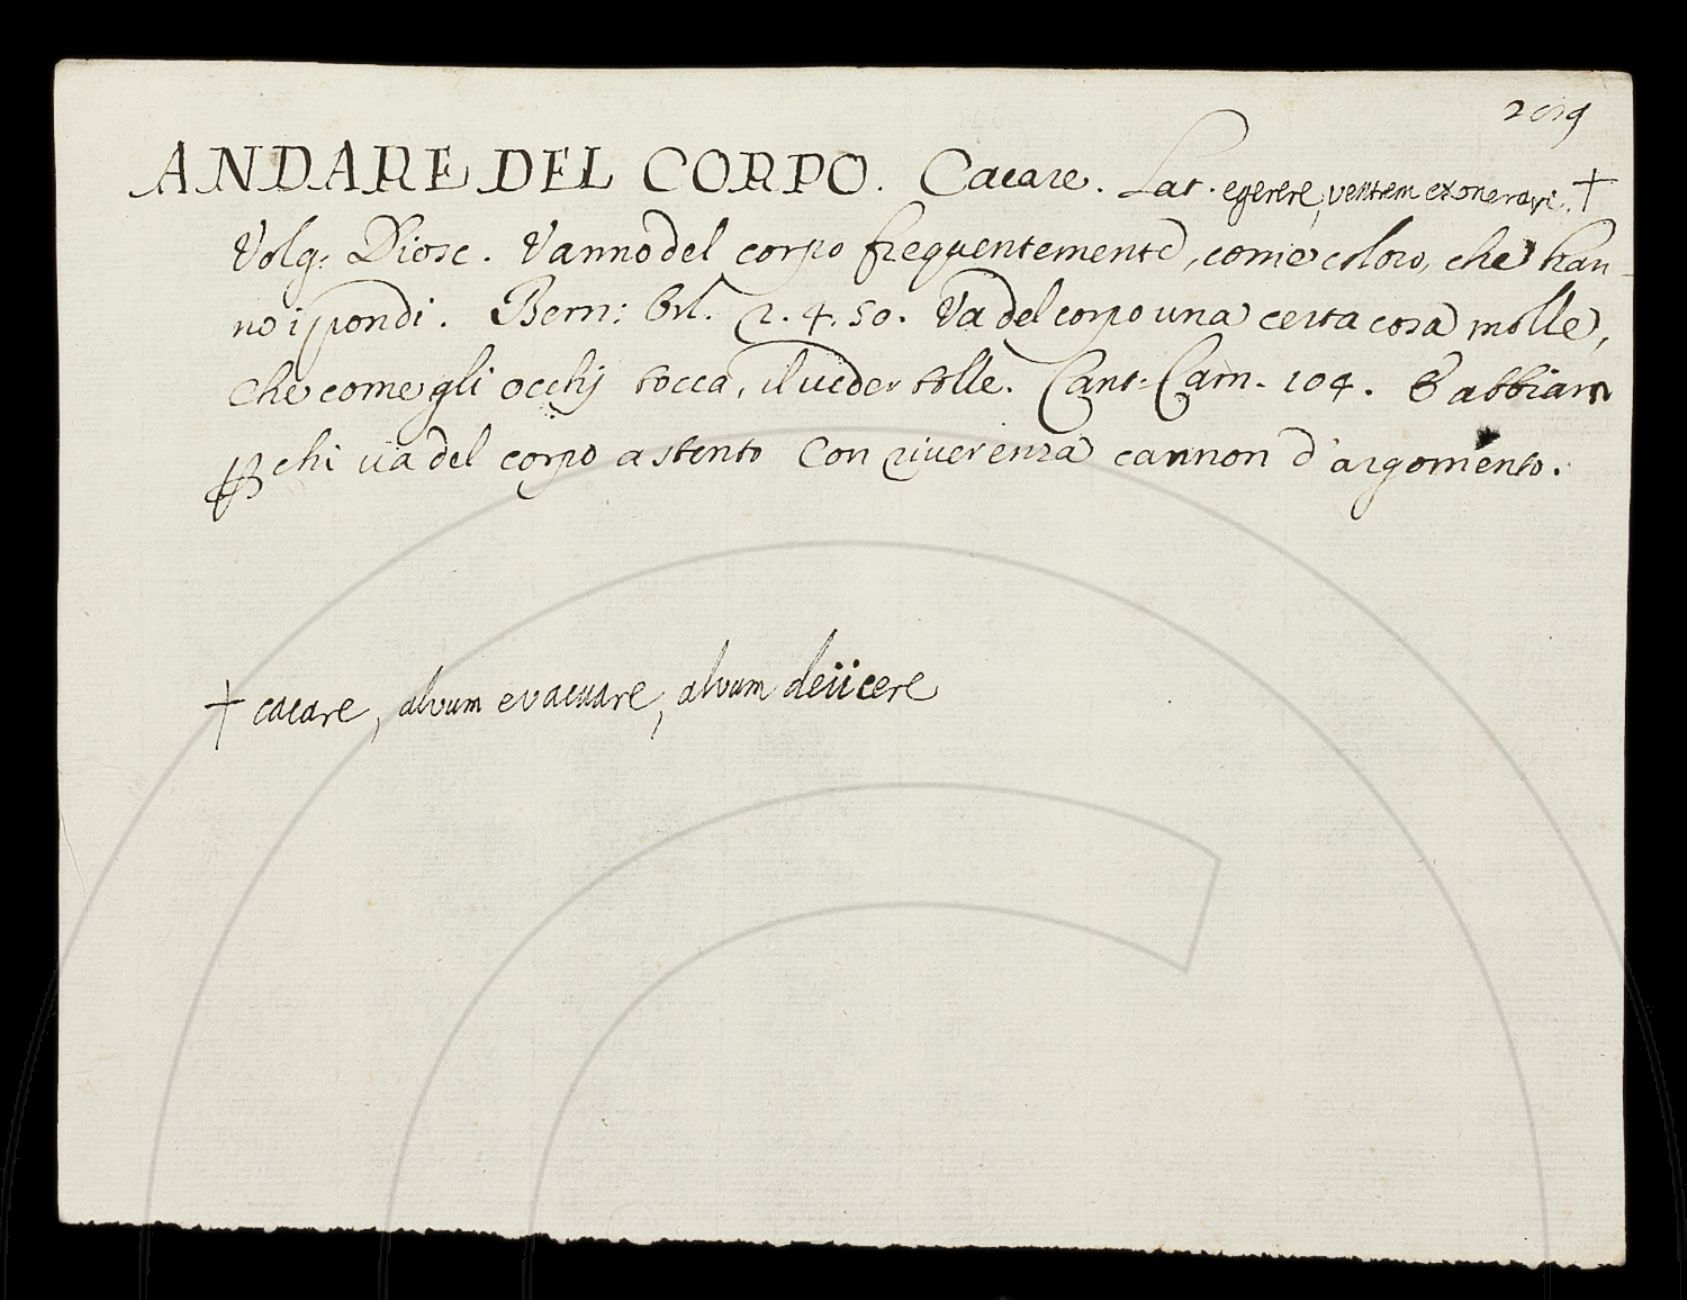 2019
ANDARE DEL CORPO. Cacare. Lat. egerere, ventrem exonerare. +
Volg. Diosc. Vanno del corpo frequentemente, come coloro, che han-
no i pondi. Bern: Orl. 2. 4. 50. Va del corpo una certa cosa molle,
Che come gli occhj tocca, il veder tolle. Cant: Carn. 104. E abbiam
ꝑ chi va del corpo a stento Con riverenza cannon d'argomento.
+ cacare, alvum evacuare, alvum deiicere